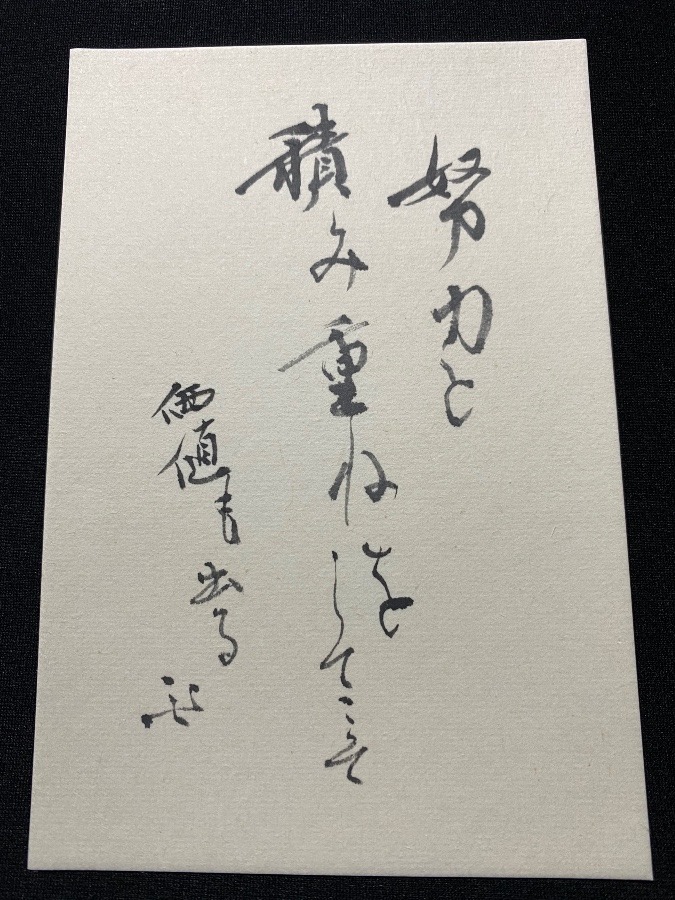 努力と
積み重ねを
してこそ
価値も出る